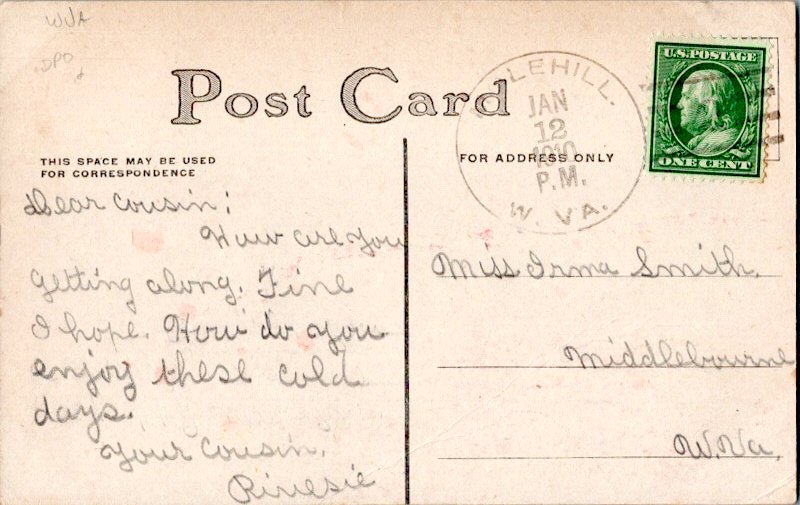 WVA
DPO
Post Card
THIS SPACE MAY BE USED
FOR CORRESPONDENCE
FOR ADDRESS ONLY
LEHILL.
JAN
12
1910
P.M.
W. VA.
U.S. POSTAGE
ONE CENT
Dear Cousin;
How are you
getting along. Fine
I hope. How do you
enjoy these cold
days.
Your Cousin,
Miss Irma Smith,
Middlebourne
W.Va.